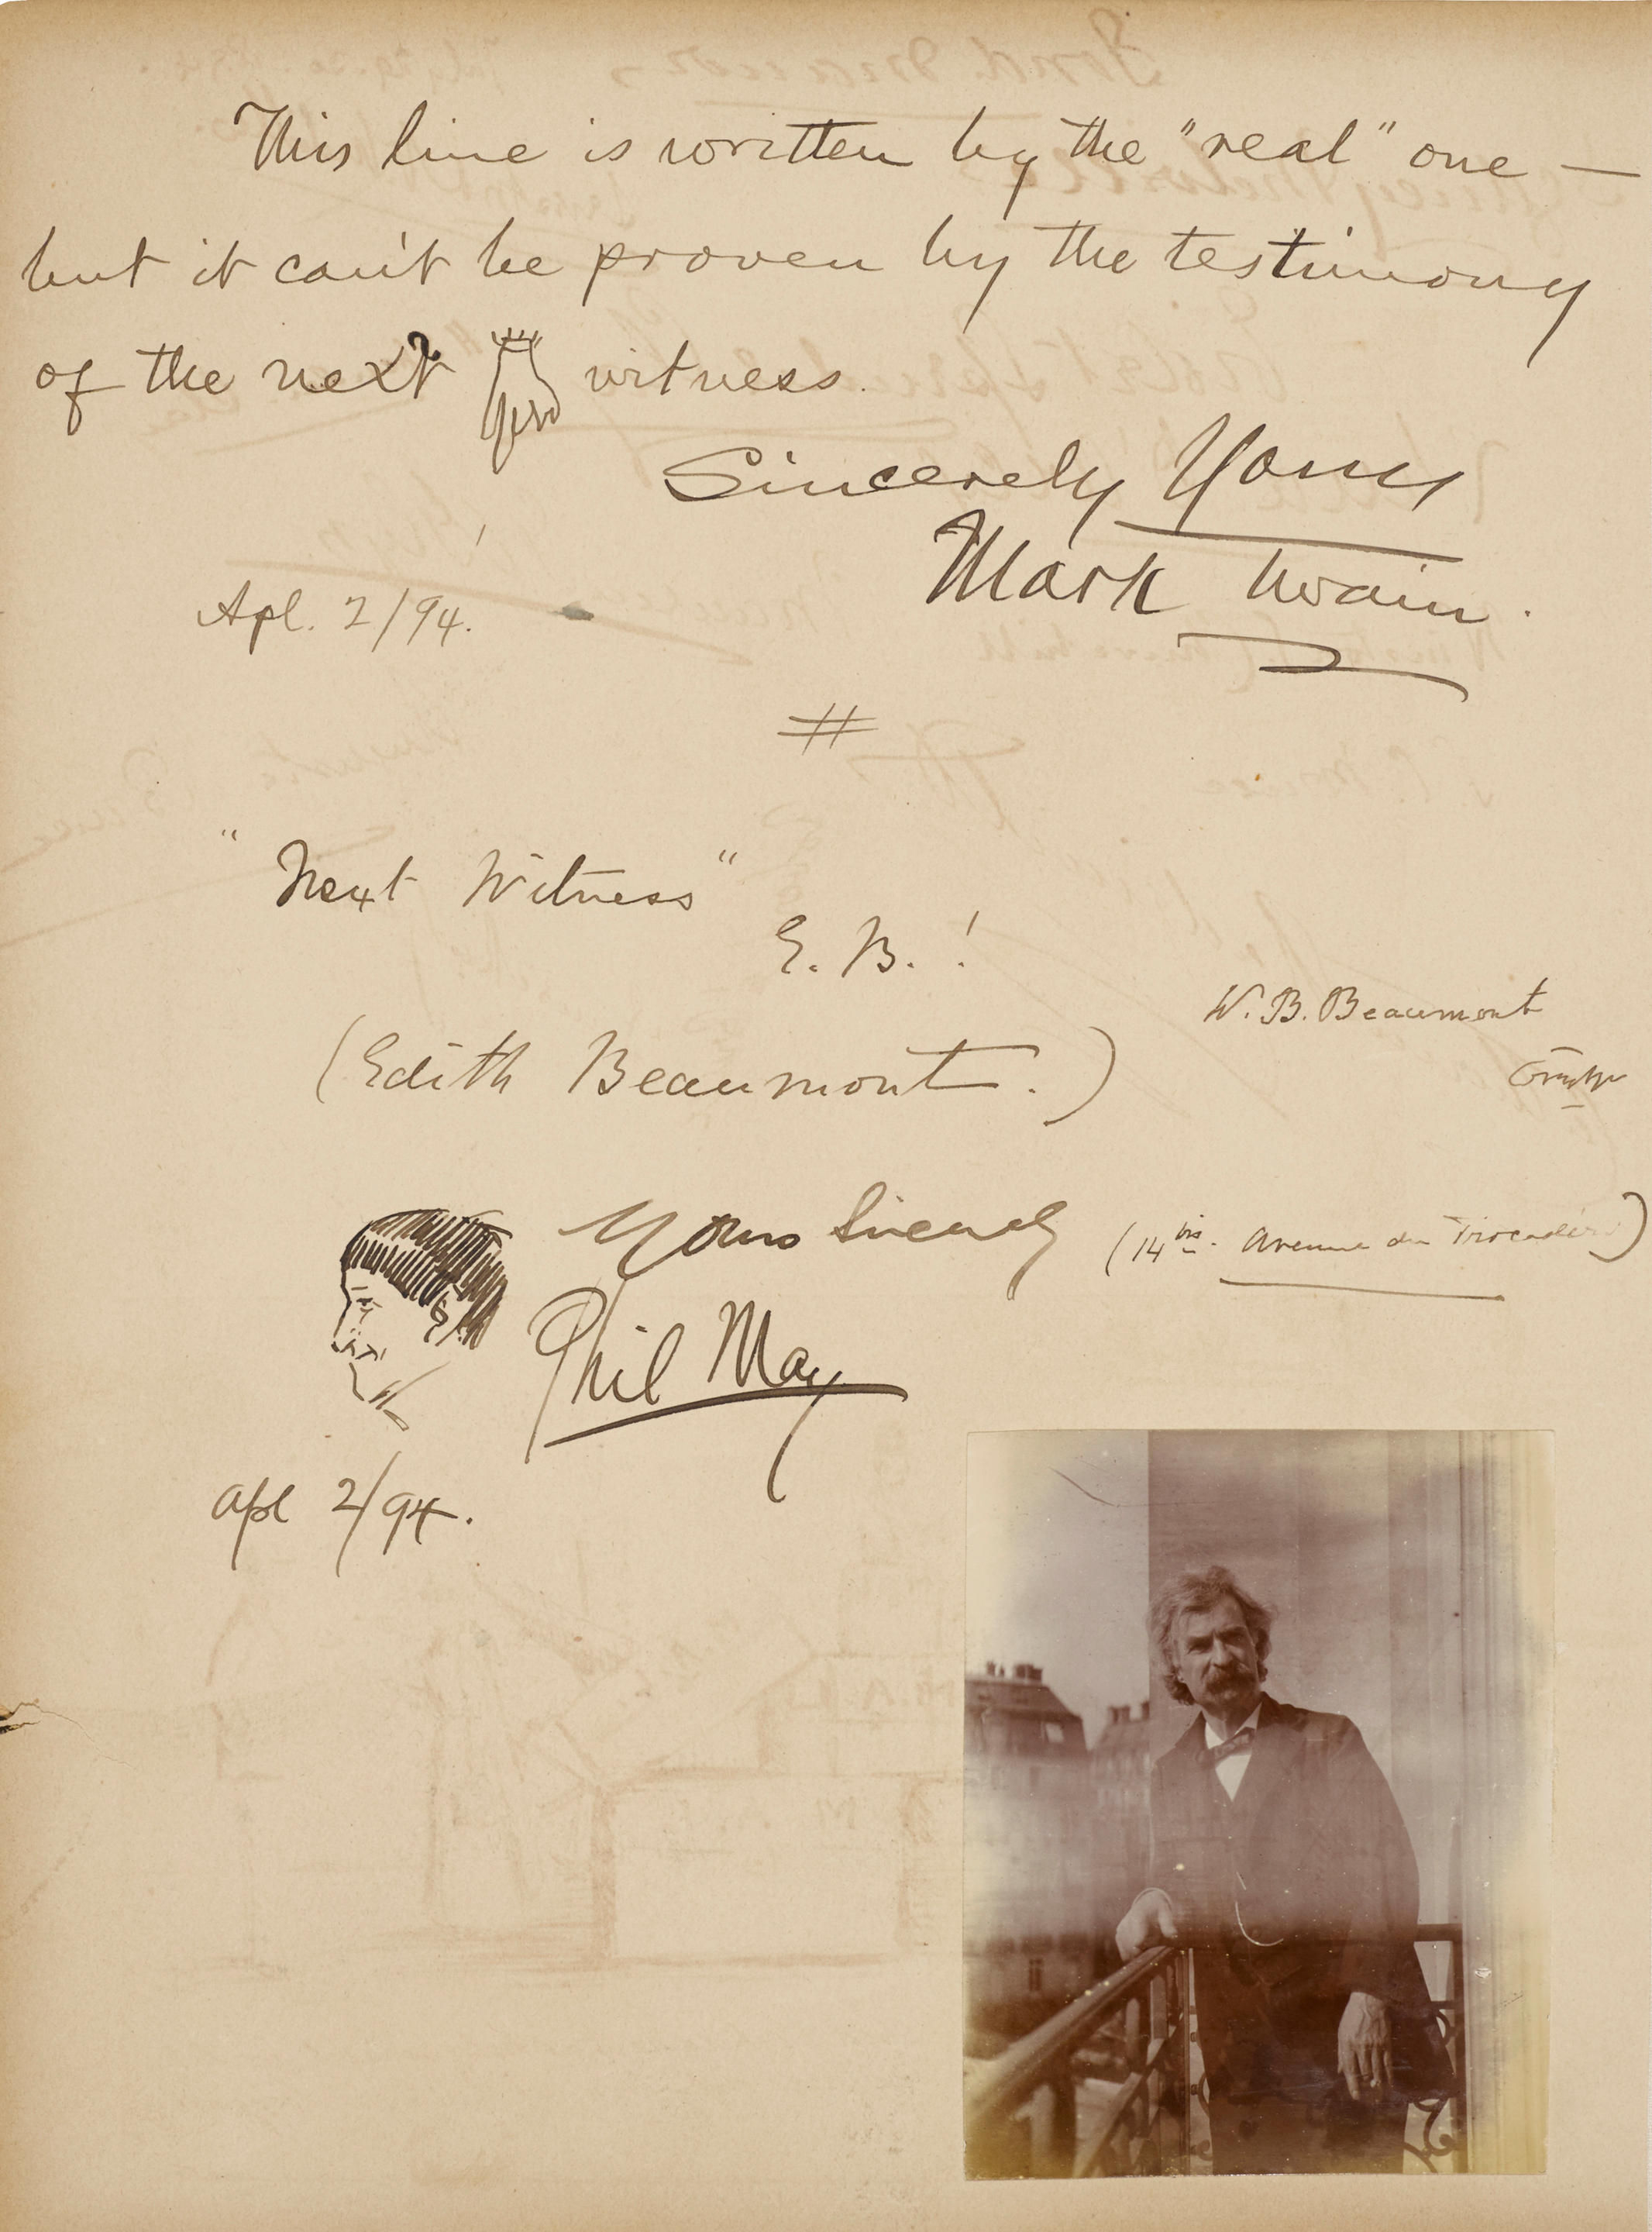 This line is written by the "real" one —
but it can't be proven by the testimony
of the next witness.
Sincerely Yours
Mark Twain.
Apl. 2/94.
#
"Next Witness"
E. B.!
(Edith Beaumont.)
W. B. Beaumont
Yours Sincerely
(14 bis. Avenue du Trocadéro)
Phil May
Apl 2/94.